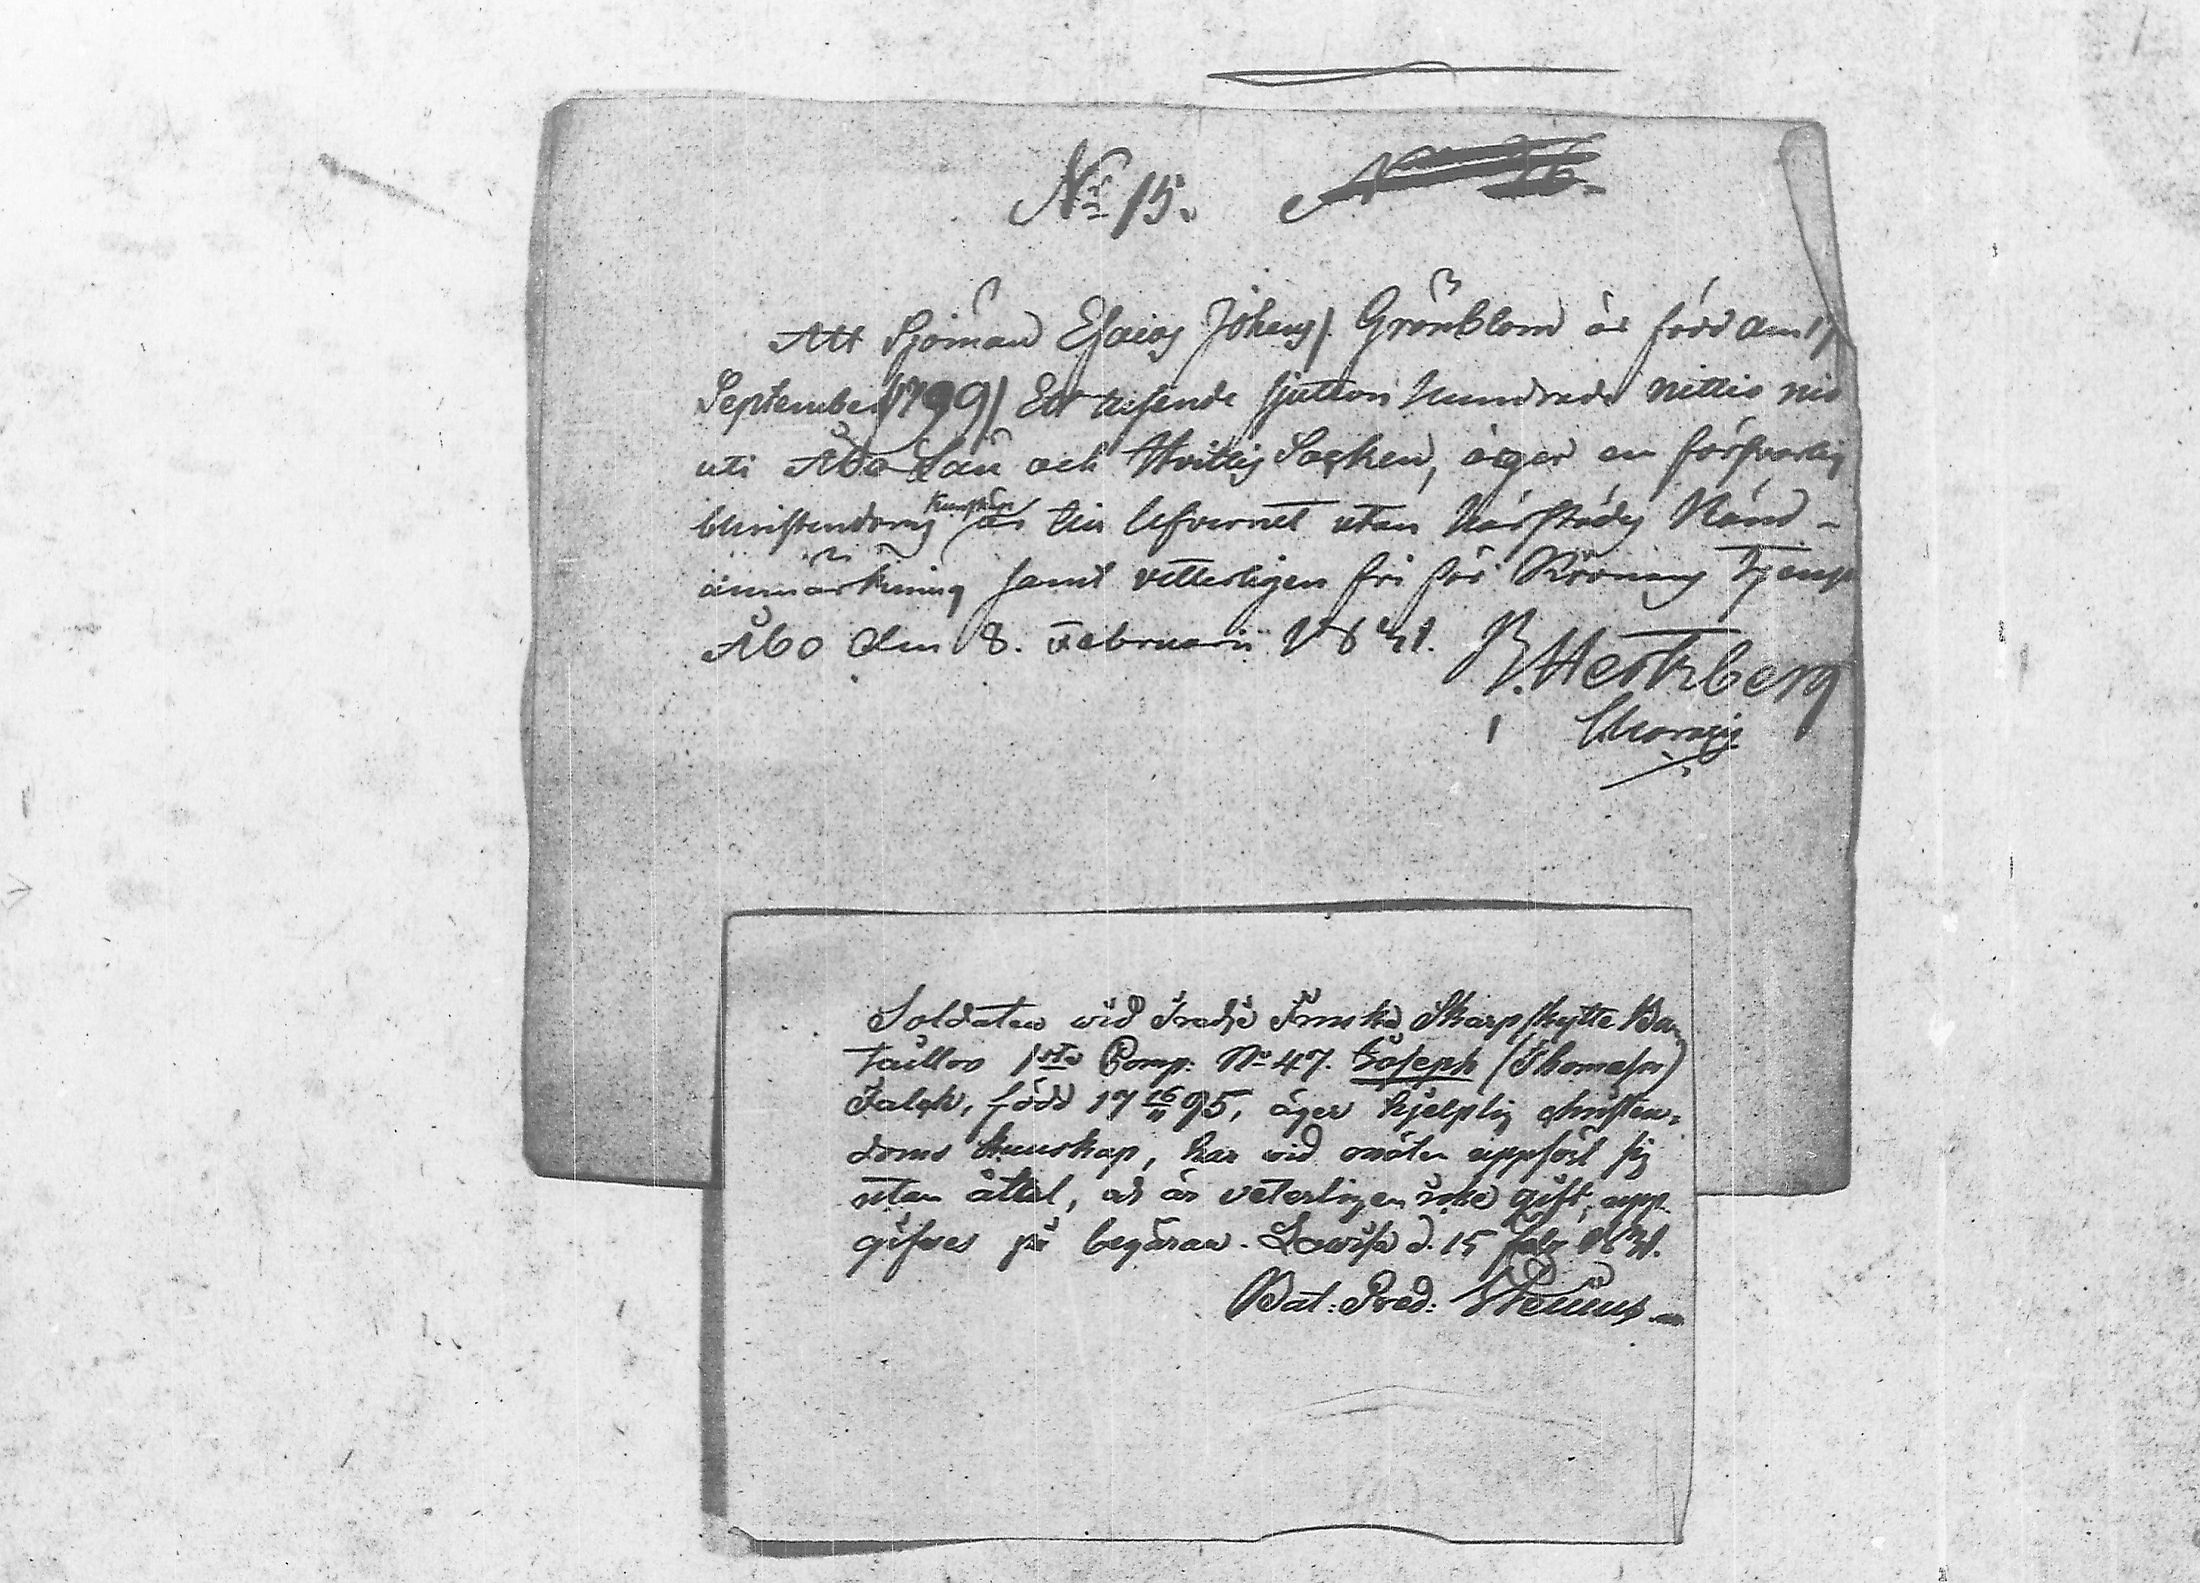 No 15.
Att Sjöman Esaias Johans/. Grönblom är född den 17
September (1799) Ett tusende sjutton hundrade nittio nio
uti Åbo Län och Hvittis Socken, äger en försvarlig
Christendoms kunskap är till lefvernet utan härstädes känd
anmärkning samt vetterligen fri för Kronans Tjenst
Åbo den 8. Februarii 1841.
Hertzberg
Soldaten wid Tredje Finska Skarpskytte Ba-
taillon 1sta Comp: No 47. Joseph (Thomasson)
Falck, född 17 16/11 95, äger hjelplig christen-
doms kunskap, har wid möten uppfört sig
utan åttal, och är veterligen icke gift, upp
gifves på begäran. Lovisa d. 15 febr 1831.
Bat: Pred: